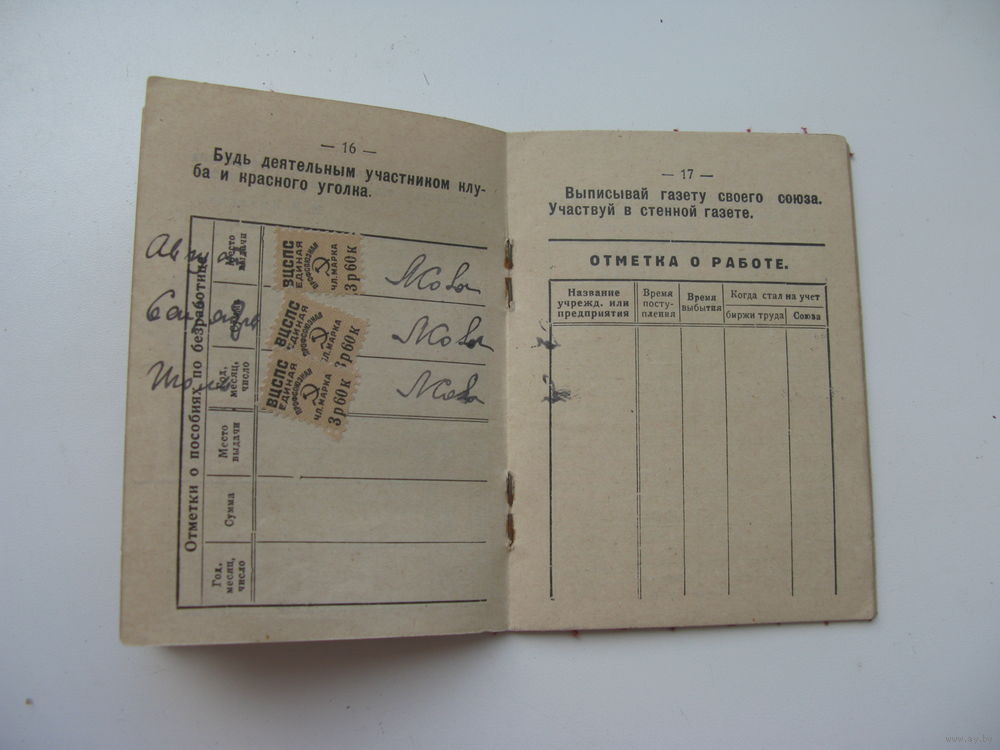 — 16 —
Будь деятельным участником клу-
ба и красного уголка.
Отметки о пособиях по безработице
Место выдачи
Сумма
Год, месяц, число
Место выдачи
Сумма
Год, месяц, число
ВЦСПС
ЕДИНАЯ
ПРОФСОЮЗНАЯ
ЧЛ. МАРКА
3 р 60 к
ВЦСПС
ЕДИНАЯ
ПРОФСОЮЗНАЯ
ЧЛ. МАРКА
3 р 60 к
ВЦСПС
ЕДИНАЯ
ПРОФСОЮЗНАЯ
ЧЛ. МАРКА
3 р 60 к
— 17 —
Выписывай газету своего союза.
Участвуй в стенной газете.
ОТМЕТКА О РАБОТЕ.
Название учрежд. или предприятия
Время посту-пления
Время выбытия
Когда стал на учет
биржи труда
Союза
www.ay.by